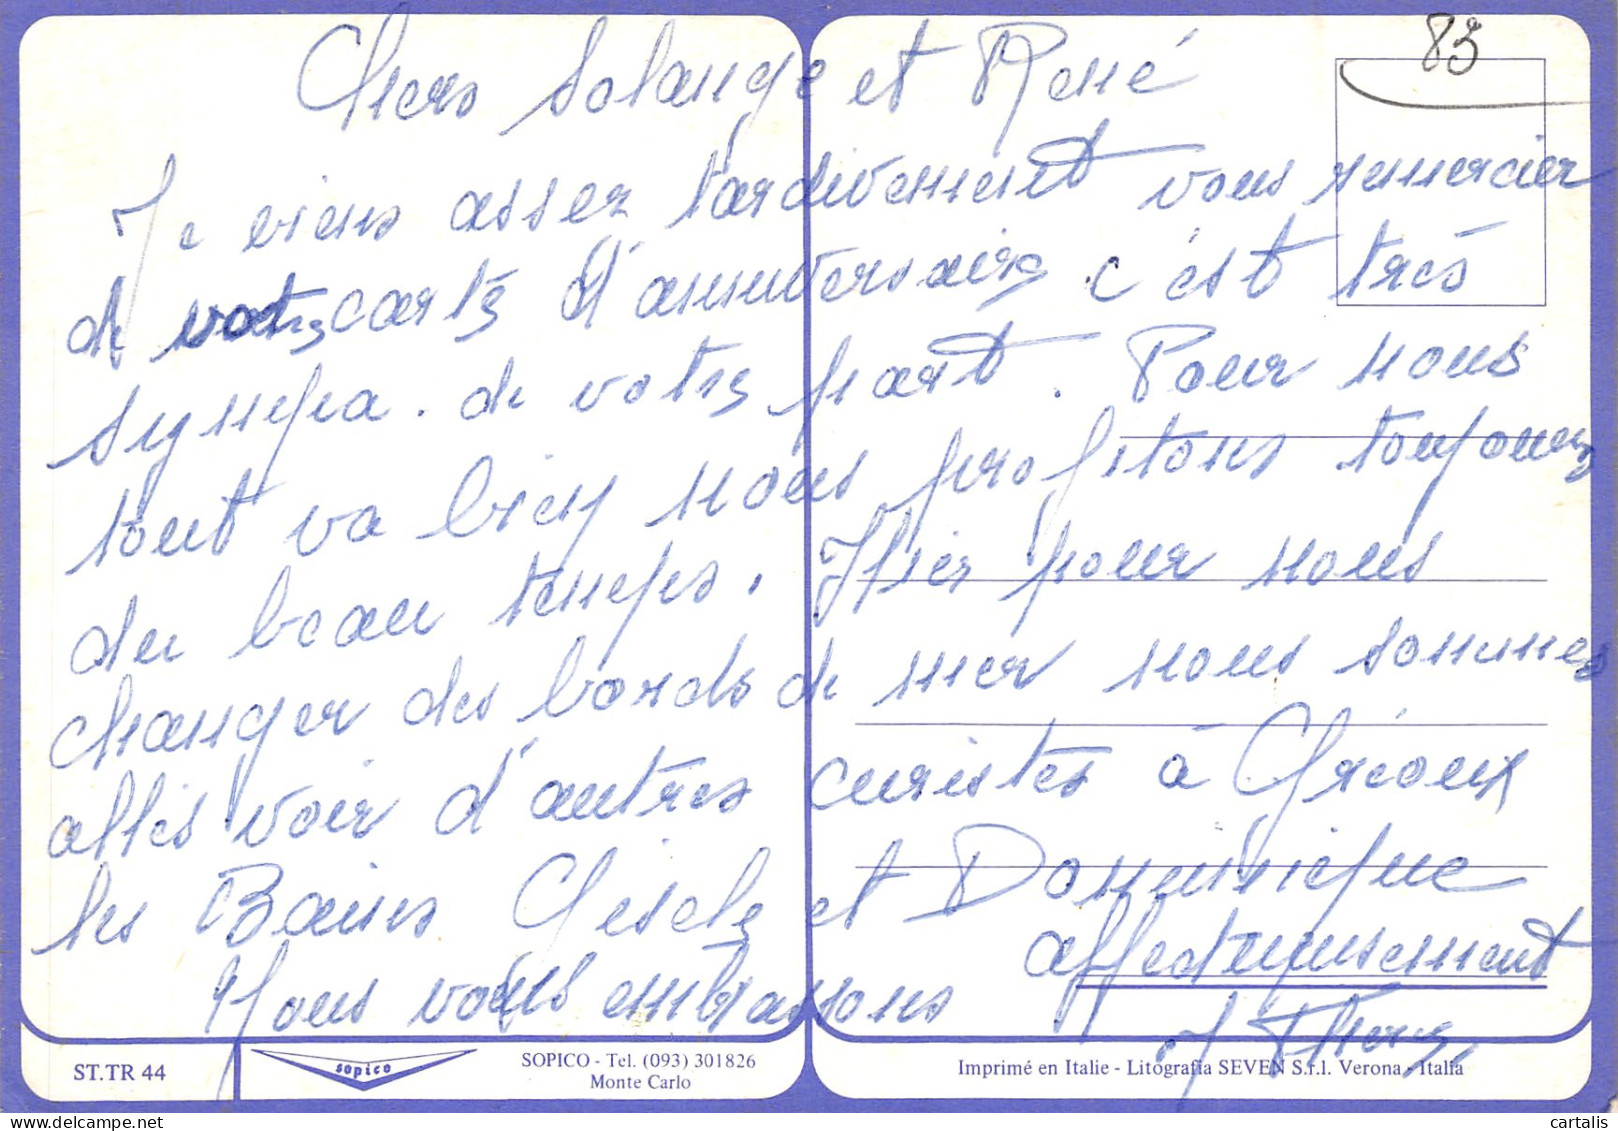 83
Chers Solange et René
Je viens assez tardivement vous remercier
de votre carte d'anniversaire. c'est très
sympa. de votre part. Pour nous
tout va bien nous profitons toujours
du beau temps. Hier pour nous
changer des bords de mer nous sommes
allés voir d'autres curistes à Gréoux
les Bains Gisele et Dominique
Nous vous embrassons affectueusement
ST.TR 44
sopico
SOPICO - Tel. (093) 301826
Monte Carlo
Imprimé en Italie - Litografia SEVEN S.r.l. Verona - Italia
cartalis